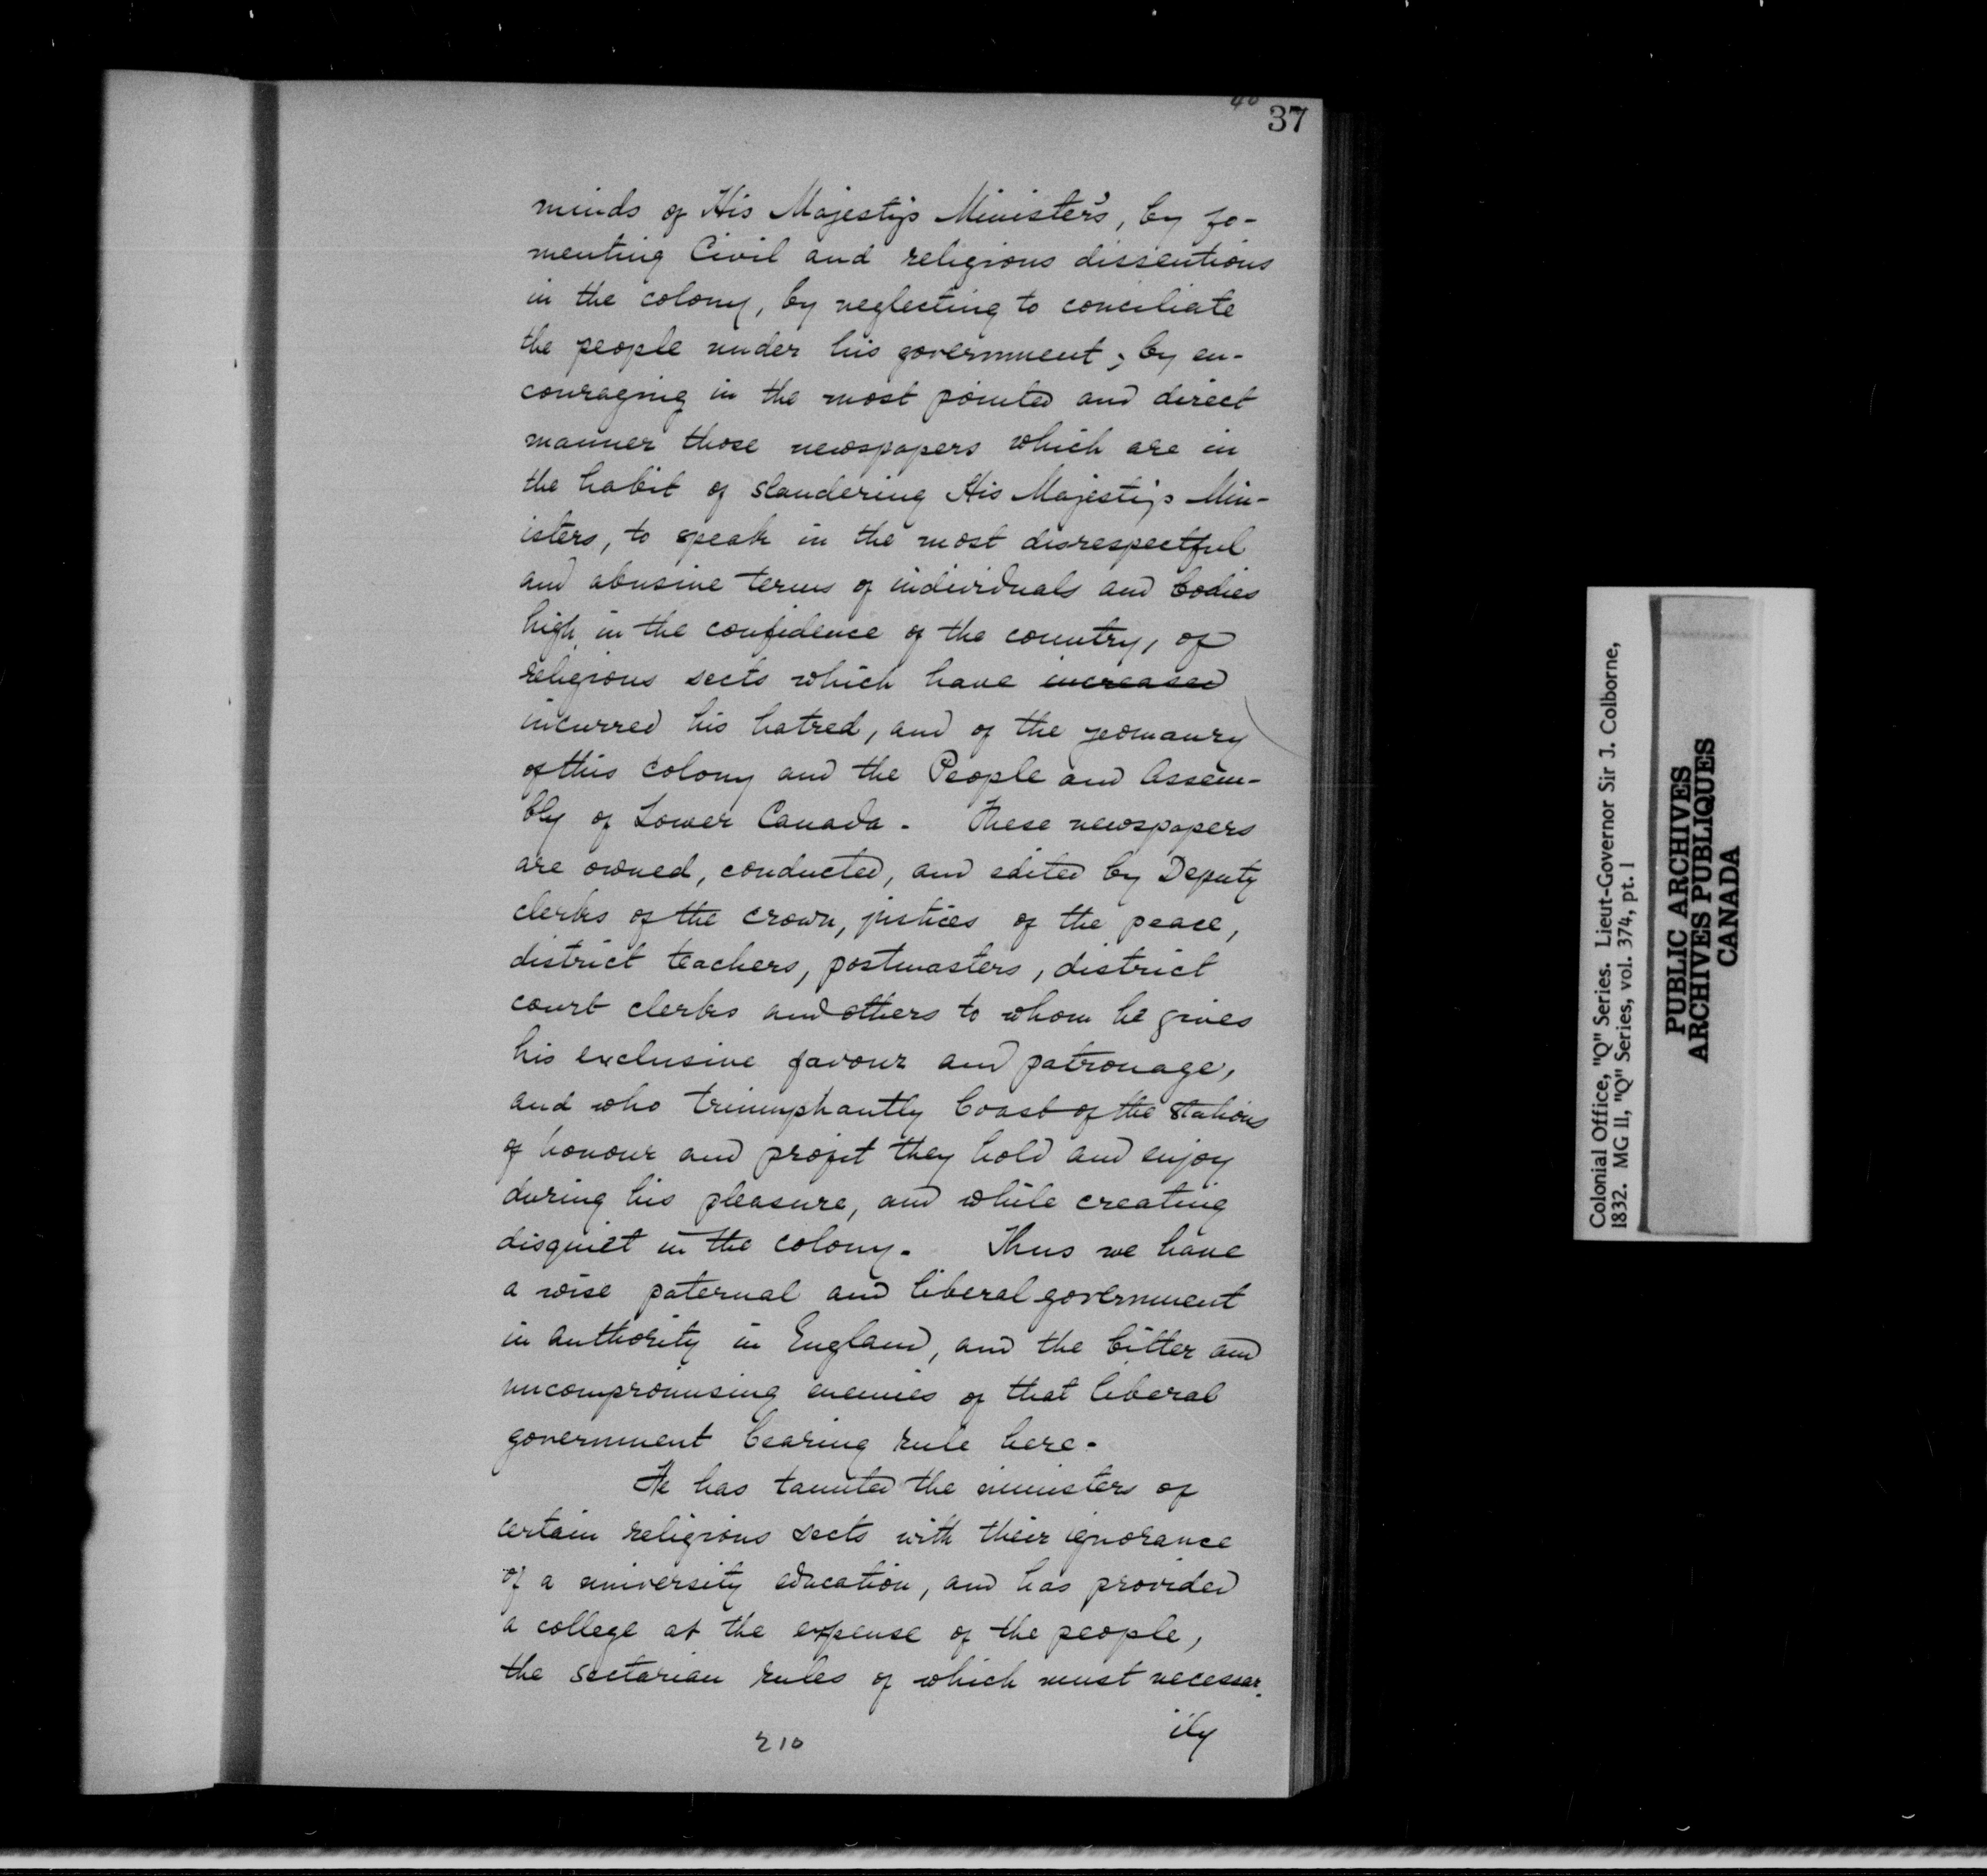 40
37
minds of His Majesty's Ministers, by fo-
menting Civil and religious dissentions
in the colony, by neglecting to conciliate
the people under his government; by en-
couraging in the most pointed and direct
manner those newspapers which are in
the habit of slandering His Majesty's Min-
isters, to speak in the most disrespectful
and abusive terms of individuals and bodies
high in the confidence of the country, of
religious sects which have increased
incurred his hatred, and of the yeomanry
of this colony and the People and Assem-
bly of Lower Canada. These newspapers
are owned, conducted, and edited by Deputy
clerks of the crown, justices of the peace,
district teachers, postmasters, district
court clerks and others to whom he gives
his exclusive favour and patronage,
and who triumphantly boast of the stations
of honour and profit they hold and enjoy
during his pleasure, and while creating
disquiet in the colony. Thus we have
a wise paternal and liberal government
in authority in England, and the bitter and
uncompromising enemies of that liberal
government bearing rule here.
He has taunted the ministers of
certain religious sects with their ignorance
of a university education, and has provided
a college at the expense of the people,
the sectarian rules of which must necessar-
ily
210
Colonial Office, "Q" Series. Lieut-Governor Sir J. Colborne,
1832. MG 11, "Q" Series, vol. 374, pt. 1
PUBLIC ARCHIVES
ARCHIVES PUBLIQUES
CANADA